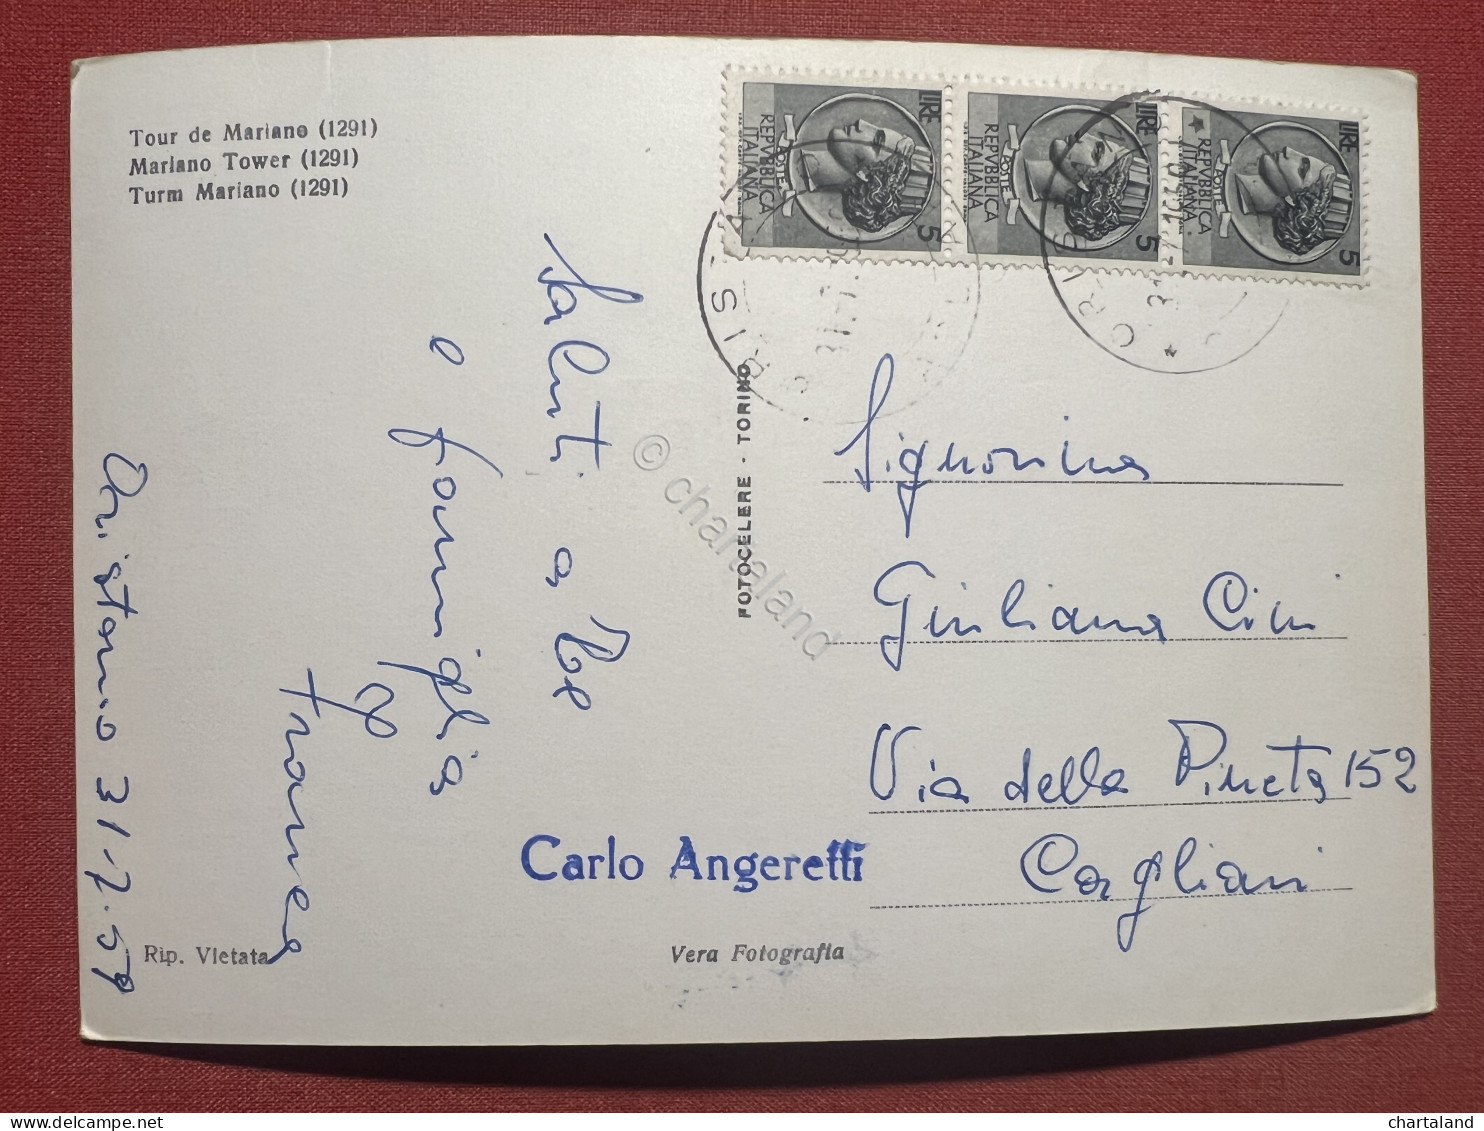 Tour de Mariano (1291)
Mariano Tower (1291)
Turm Mariano (1291)
LIRE
REPVBBLICA
ITALIANA
POSTE
5
LIRE
REPVBBLICA
ITALIANA
POSTE
5
LIRE
REPVBBLICA
ITALIANA
POSTE
5
Saluti a Te
e famiglia
Franca
Oristano 31-7-59
FOTOCELERE - TORINO
Signorina
Giuliana Cini
Via della Pineta 152
Cagliari
Carlo Angeretti
Rip. Vietata
Vera Fotografia
© chartaland
chartaland
delcampe.net